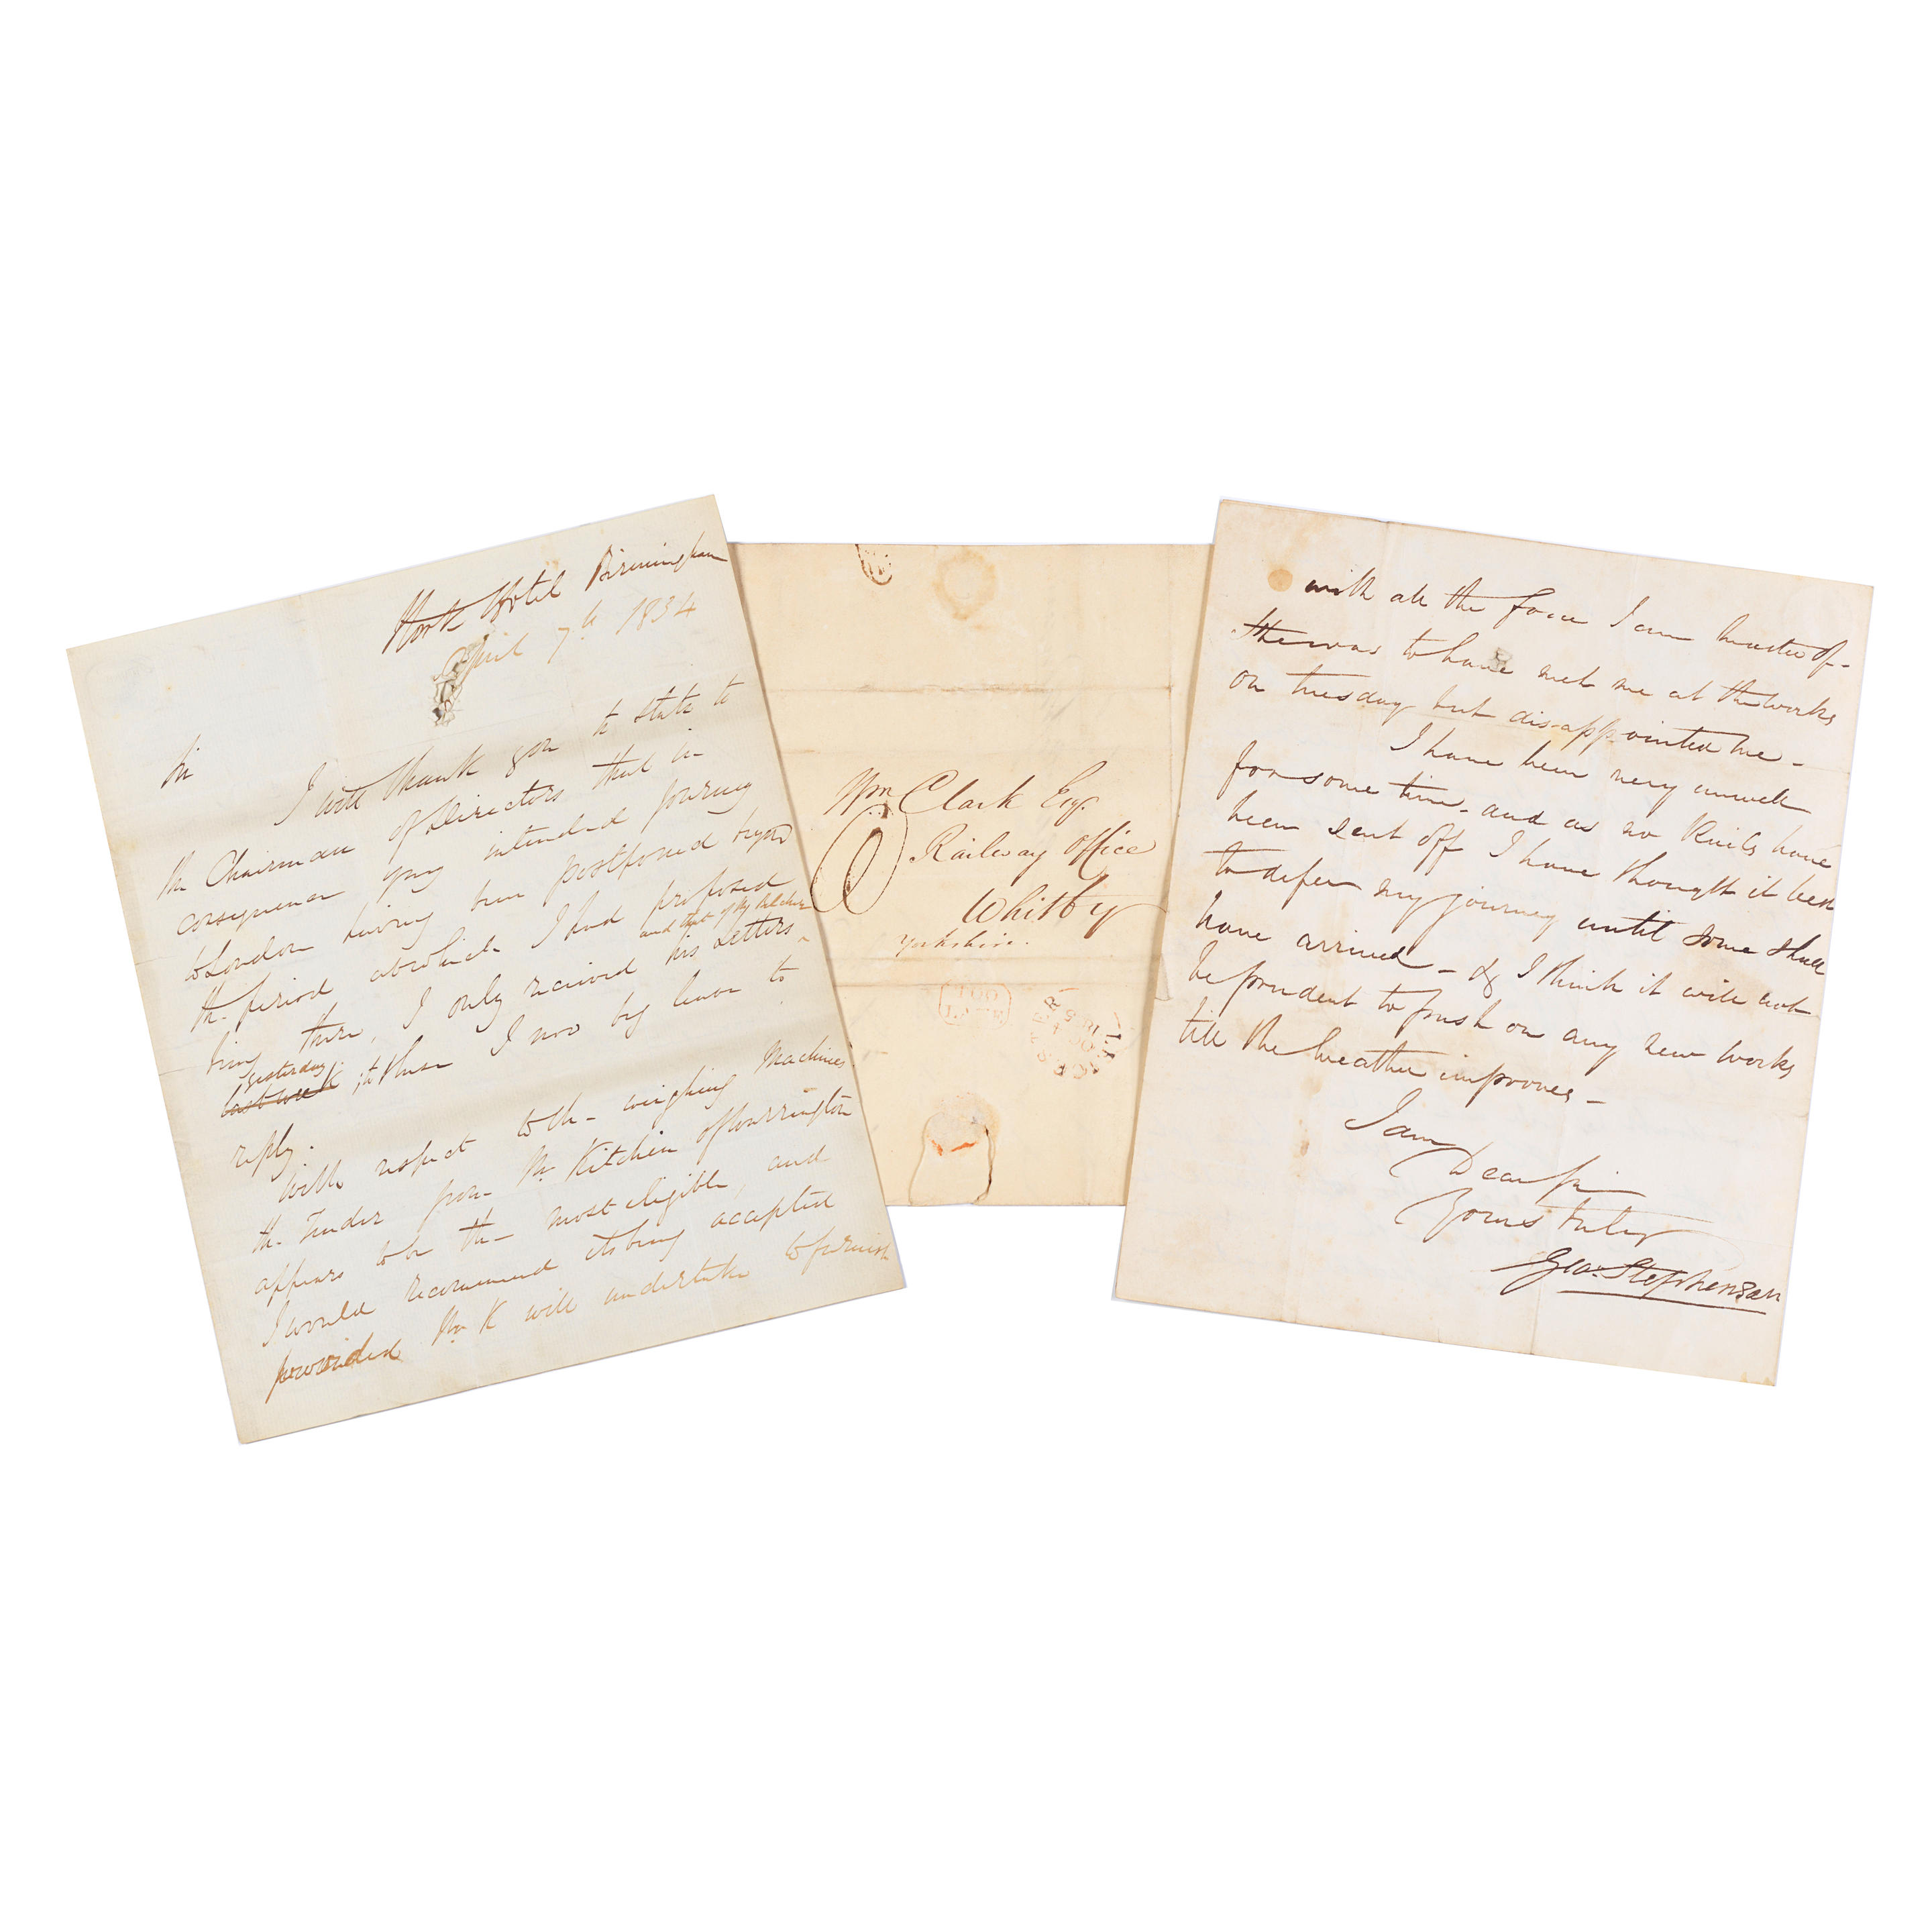 Hotel Birmingham
April 7th 1834
Sir
I will thank you to state to
the Chairman of Directors that in
consequence of my intended journey
to London having been postponed beyond
the period at which I had proposed
and that of Mr
being there, I only received his Letters
yesterday
last week ; to these I now beg leave to
reply.
With respect to the weighing Machines
the Tender from Mr Kitchen of Warrington
appears to be the most eligible, and
I would recommend its being accepted
provided Mr K will undertake to furnish
Wm Clark Esqr
Railway Office
Whitby
Yorkshire.
TOO
LATE
with all the force I am master of -
He was to have met me at the works
on tuesday but disappointed me -
I have been very unwell
for some time - and as no Rails have
been sent off I have thought it best
to defer my journey until some shall
have arrived - & I think it will not
be prudent to push on any new works
till the weather improves -
I am
Dear Sir
Yours truly
Geo: Stephenson